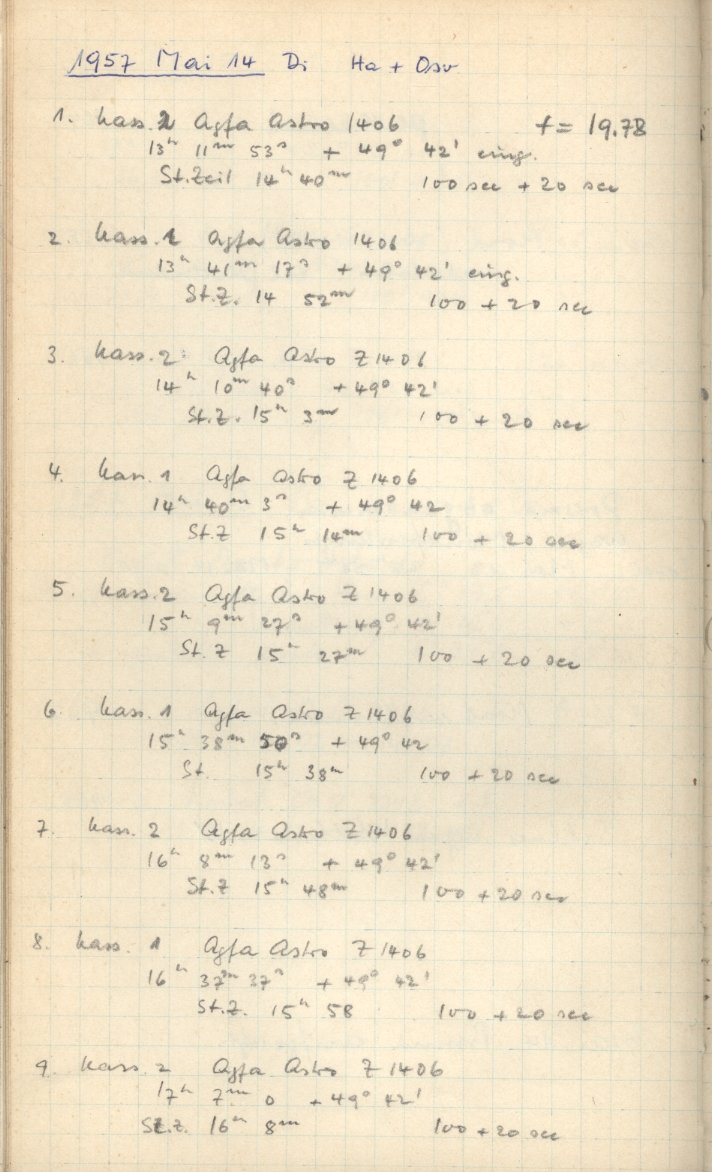 1957 Mai 14 Di Ha + Osv
1. Kass. 2 Agfa Astro 1406 f = 19.78
13ʰ 11ᵐ 53ˢ + 49° 42' eing.
St.Zeit 14ʰ 40ᵐ 100 sec + 20 sec
2. Kass. 1 Agfa Astro 1406
13ʰ 41ᵐ 17ˢ + 49° 42' eing.
St.Z. 14 52ᵐ 100 + 20 sec
3. Kass. 2: Agfa Astro Z 1406
14ʰ 10ᵐ 40ˢ + 49° 42'
St.Z. 15ʰ 3ᵐ 100 + 20 sec
4. Kass. 1 Agfa Astro Z 1406
14ʰ 40ᵐ 3ˢ + 49° 42
St.Z 15ʰ 14ᵐ 100 + 20 sec
5. Kass. 2 Agfa Astro Z 1406
15ʰ 9ᵐ 27ˢ + 49° 42'
St. Z 15ʰ 27ᵐ 100 + 20 sec
6. Kass. 1 Agfa Astro Z 1406
15ʰ 38ᵐ 50ˢ + 49° 42
St. 15ʰ 38ᵐ 100 + 20 sec
7. Kass. 2 Agfa Astro Z 1406
16ʰ 8ᵐ 13ˢ + 49° 42'
St.Z 15ʰ 48ᵐ 100 + 20 sec
8. Kass. 1 Agfa Astro Z 1406
16ʰ 37ᵐ 37ˢ + 49° 42'
St.Z. 15ʰ 58 100 + 20 sec
9. Kass. 2 Agfa Astro Z 1406
17ʰ 7ᵐ 0 + 49° 42'
St.Z. 16ʰ 8ᵐ 100 + 20 sec